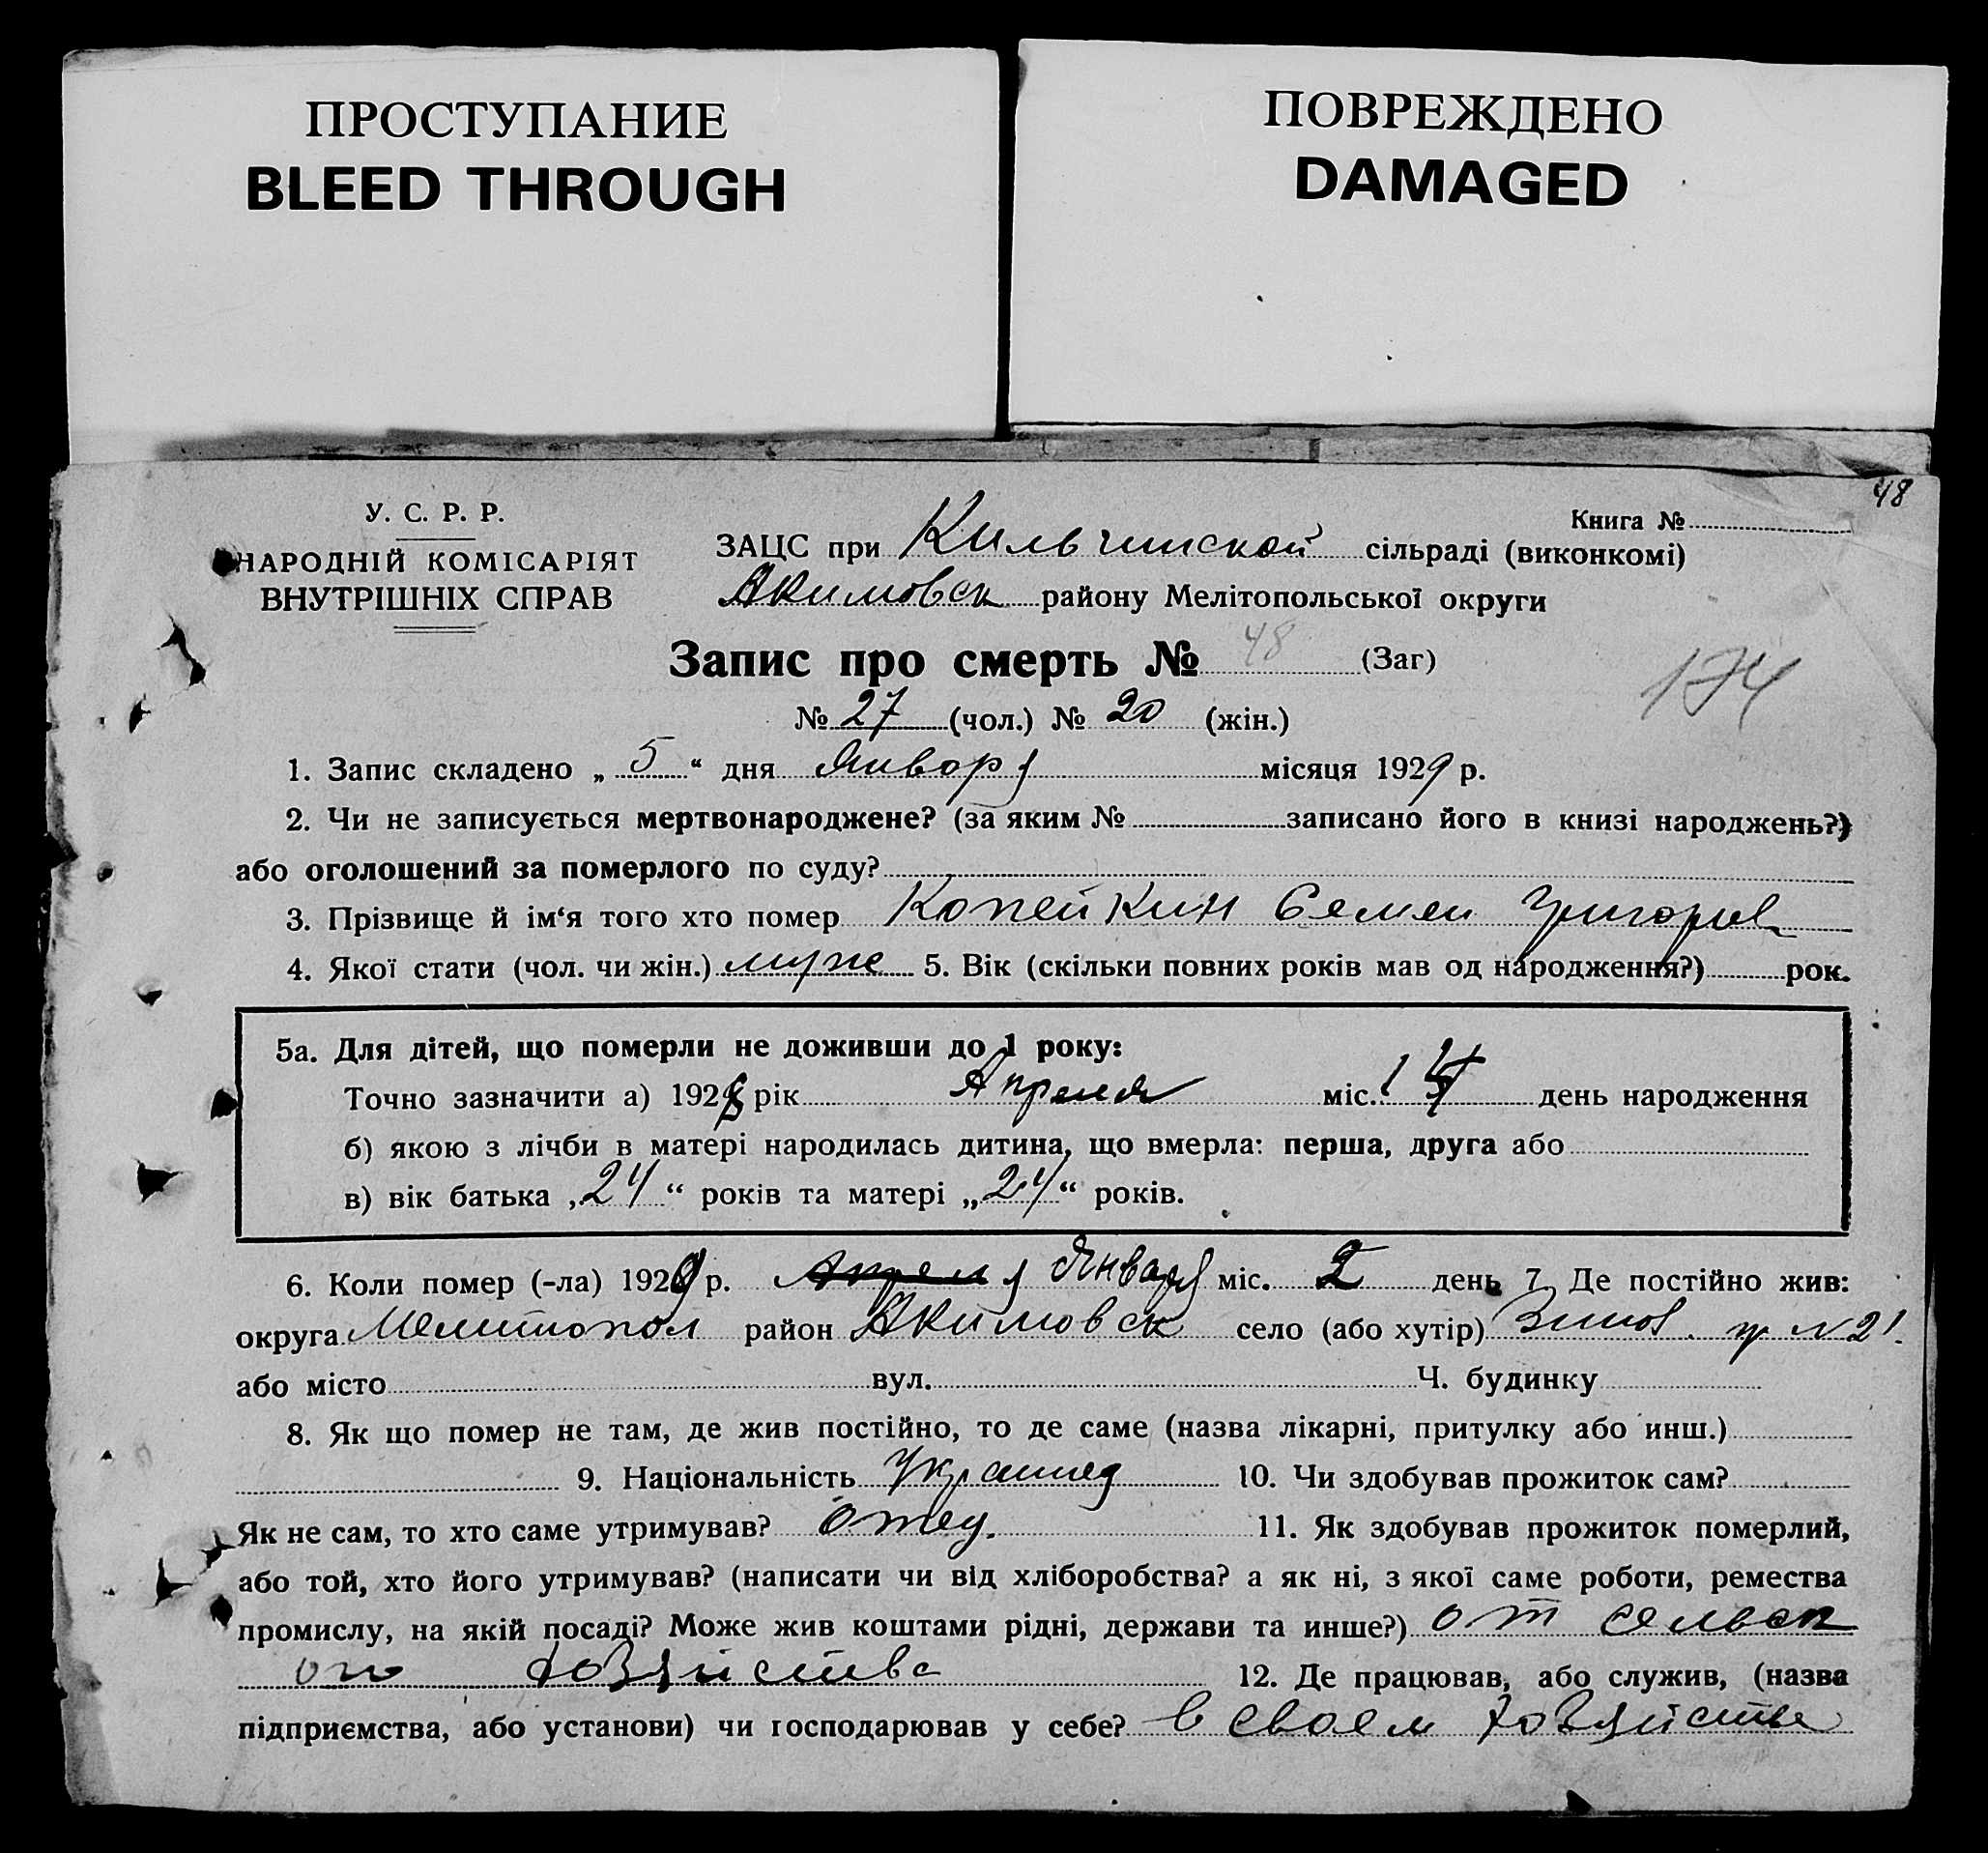 ПРОСТУПАНИЕ
BLEED THROUGH
ПОВРЕЖДЕНО
DAMAGED
48
У. С. Р. Р.
НАРОДНІЙ КОМІСАРІЯТ
ВНУТРІШНІХ СПРАВ
Книга №
ЗАЦС при Кильчинской сільраді (виконкомі)
Акимовск району Мелітопольської округи
Запис про смерть № 48 (Заг)
174
№ 27 (чол.) № 20 (жін.)
1. Запис складено „ 5 “ дня Январ я місяця 1929 р.
2. Чи не записується мертвонароджене? (за яким № записано його в книзі народжень?)
або оголошений за померлого по суду?
3. Прізвище й ім‘я того хто помер Копейкин Семен Григорьев
4. Якої стати (чол. чи жін.) муж 5. Вік (скільки повних років мав од народження?) рок.
5а. Для дітей, що померли не доживши до 1 року:
Точно зазначити а) 1928 рік Апреля міс. 14 день народження
б) якою з лічби в матері народилась дитина, що вмерла: перша, друга або
в) вік батька „ 24 “ років та матері „ 24 “ років.
6. Коли помер (-ла) 1929 р. Апреля Января міс. 2 день 7. Де постійно жив:
округа Мелитопол район Акимовск село (або хутір) №21.
або місто вул. Ч. будинку
8. Як що помер не там, де жив постійно, то де саме (назва лікарні, притулку або инш.)
9. Національність 10. Чи здобував прожиток сам?
Як не сам, то хто саме утримував? Отец. 11. Як здобував прожиток померлий,
або той, хто його утримував? (написати чи від хліборобства? а як ні, з якої саме роботи, ремества
промислу, на якій посаді? Може жив коштами рідні, держави та инше?) от сельск
ого хозяйства 12. Де працював, або служив, (назва
підприємства, або установи) чи господарював у себе? в своем хозяйстве